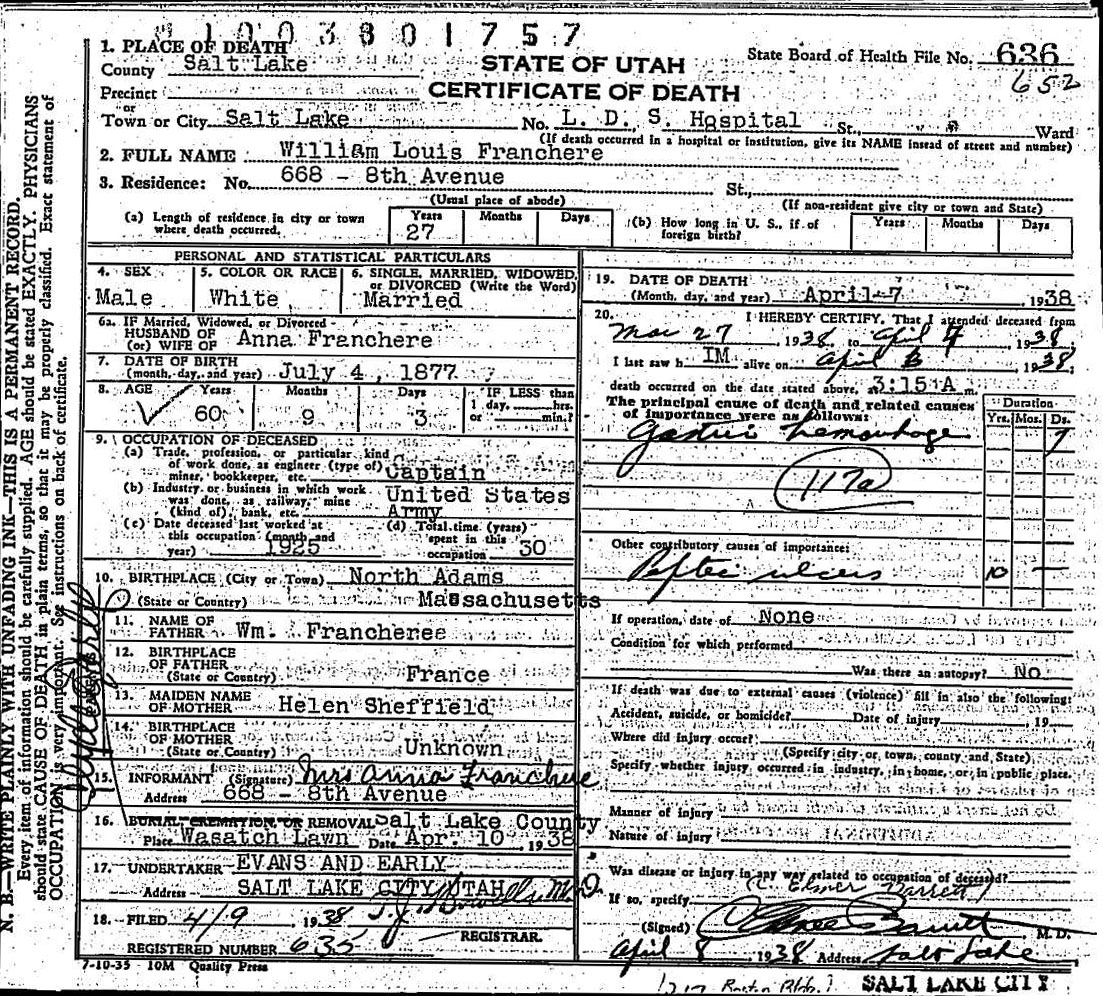 1003801757
1. PLACE OF DEATH
County Salt Lake
STATE OF UTAH
State Board of Health File No. 636
652
Precinct
CERTIFICATE OF DEATH
or
Town or City Salt Lake No. L. D. S. Hospital St., Ward
(If death occurred in a hospital or institution, give its NAME instead of street and number)
2. FULL NAME William Louis Franchere
3. Residence: No. 668 - 8th Avenue St.,
(Usual place of abode) (If non-resident give city or town and State)
(a) Length of residence in city or town where death occurred. Years 27 Months Days
(b) How long in U. S., if of foreign birth? Years Months Days
PERSONAL AND STATISTICAL PARTICULARS
4. SEX Male
5. COLOR OR RACE White
6. SINGLE, MARRIED, WIDOWED, or DIVORCED (Write the Word) Married
6a. IF Married, Widowed, or Divorced
HUSBAND OF
(or) WIFE OF Anna Franchere
7. DATE OF BIRTH
(month, day, and year) July 4, 1877
8. AGE Years 60 Months 9 Days 3 IF LESS than 1 day, hrs. or min.?
9. OCCUPATION OF DECEASED
(a) Trade, profession, or particular kind
of work done, as engineer (type of)
miner, bookkeeper, etc. Captain
(b) Industry or business in which work
was done, as railway, mine
(kind of), bank, etc. United States Army
(c) Date deceased last worked at
this occupation (month and
year) 1925
(d) Total time (years)
spent in this
occupation 30
10. BIRTHPLACE (City or Town) North Adams
(State or Country) Massachusetts
11. NAME OF
FATHER Wm. Francheree
12. BIRTHPLACE
OF FATHER
(State or Country) France
13. MAIDEN NAME
OF MOTHER Helen Sheffield
14. BIRTHPLACE
OF MOTHER
(State or Country) Unknown
15. INFORMANT (Signature) Mrs Anna Franchere
Address 668 - 8th Avenue
16. BURIAL CREMATION, OR REMOVAL Salt Lake County
Place Wasatch Lawn Date Apr. 10, 1938
17. UNDERTAKER EVANS AND EARLY
Address SALT LAKE CITY UTAH
18. FILED 4/9 1938 M.D.
REGISTRAR.
REGISTERED NUMBER 635
7-10-35 10M Quality Press
19. DATE OF DEATH
(Month, day, and year) April 7, 1938
20. I HEREBY CERTIFY, That I attended deceased from
Mar 27, 1938, to April 7, 1938,
I last saw h IM alive on April 1938,
death occurred on the date stated above, at 3:15 A m.
The principal cause of death and related causes
of importance were as follows:
Duration
Yrs. Mos. Ds.
Gastric hemorrhage 7
117a
Other contributory causes of importance:
Peptic ulcers 10 —
If operation, date of None
Condition for which performed
Was there an autopsy? No.
If death was due to external causes (violence) fill in also the following:
Accident, suicide, or homicide? Date of injury , 19
Where did injury occur?
(Specify city or town, county and State)
Specify whether injury occurred in industry, in home, or in public place.
Manner of injury
Nature of injury
Was disease or injury in any way related to occupation of deceased?
(C. Elmer Barrett)
If so, specify
(Signed) C Elmer Barrett M. D.
April 8 1938 Address Salt Lake
1217 Boston Bldg.
SALT LAKE CITY
N. B.—WRITE PLAINLY WITH UNFADING INK—THIS IS A PERMANENT RECORD.
Every item of information should be carefully supplied. AGE should be stated EXACTLY. PHYSICIANS
should state CAUSE OF DEATH in plain terms, so that it may be properly classified. Exact statement of
OCCUPATION is very important. See instructions on back of certificate.